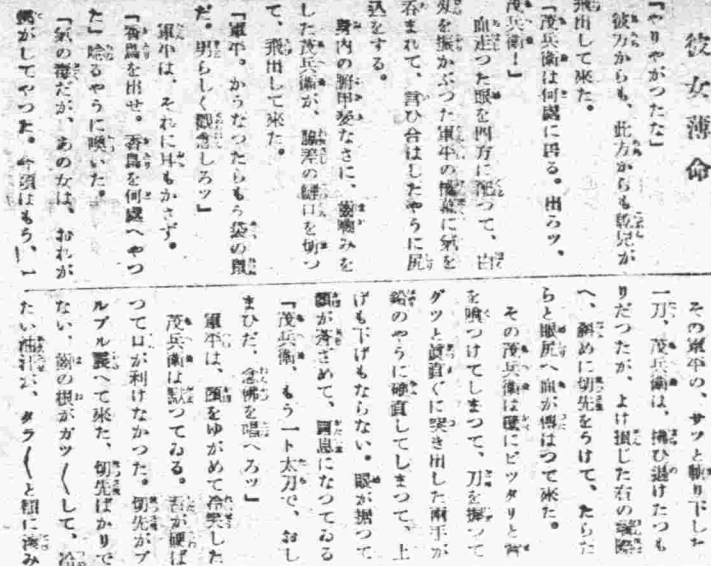 彼女薄命
『やりやがつたな』
彼方からも、此方からも乾兒が
飛出して來た。
『茂兵衞は何處に居る。出ろツ、
茂兵衞！』
血走つた眼を四方に配つて、白
刄を振かぶつた軍平の權幕に氣を
呑まれて、言ひ合はしたやうに尻
込をする。
身内の腑甲斐なさに、齒噛みを
した茂兵衞が、脇差の鯉口を切つ
て、飛出して來た。
『軍平。かうなつたらもう袋の鼠
だ。男らしく觀念しろツ』
軍平は、それに耳もかさず。
『香鳥を出せ。香鳥を何處へやつ
た』唸るやうに喚いた。
『氣の毒だが、あの女は、おれが
がしてやつた。今頃はもう、一
その軍平の、サツと斬り下した
一刀、茂兵衞は、拂ひ退けたつも
りだつたが、よけ損じた右の際
へ、斜めに切先をうけて、たらた
らと眼尻へ血が傳はつて來た。
その茂兵衞は壁にピツタリと背
を喰つけてしまつて、刀を握つて
グツと眞直ぐに突き出した兩手が
鉛のやうに硬直してしまつて、上
げも下げもならない。眼が据つて
顏が蒼ざめて、肩息になつてゐる
『茂兵衞、もう一ト太刀で、おし
まひだ、念佛を唱へろツ』
軍平は、頤をゆがめて冷笑した
茂兵衞は默つてゐる。舌が硬ば
つて口が利けなかつた。切先がブ
ルブル震へて來た、切先ばかりで
ない、齒の根がガツ〳〵して、冷
たい油汗が、タラ〳〵と額に滲み